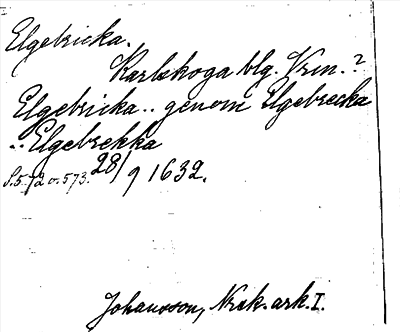 Elgebricka.
Karlskoga blg. Vrm.?
Elgebricka.. genom Elgebrecka
.. Elgebrekka
S. 572 o. 573. 28/9 1632.
Johansson, Nrsk. ark. I.